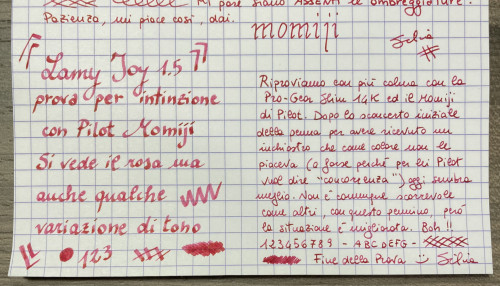 Mi pare siano ASSENTI le ombreggiature.
Pazienza, mi piace così, dai.
momiji
Silvia
Lamy Joy 1.5
prova per intinzione
con Pilot Momiji
Si vede il rosa ma
anche qualche
variazione di tono
123
Riproviamo con più calma con la
Pro-Gear Slim 14K ed il Momiji
di Pilot. Dopo lo sconcerto iniziale
della penna per avere ricevuto un
inchiostro che come colore non le
piaceva (o forse perché per lei Pilot
vuol dire "concorrenza") oggi sembra
meglio. Non è comunque scorrevole
come altri, con questo pennino, però
la situazione è migliorata. Boh !!
123456789 - ABCDEFG -
Fine della Prova :) Silvia